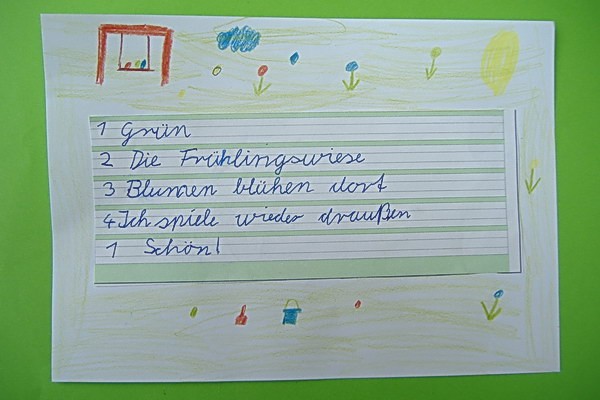 1 Grün
2 Die Frühlingswiese
3 Blumen blühen dort
4 Ich spiele wieder draußen
1 Schön!